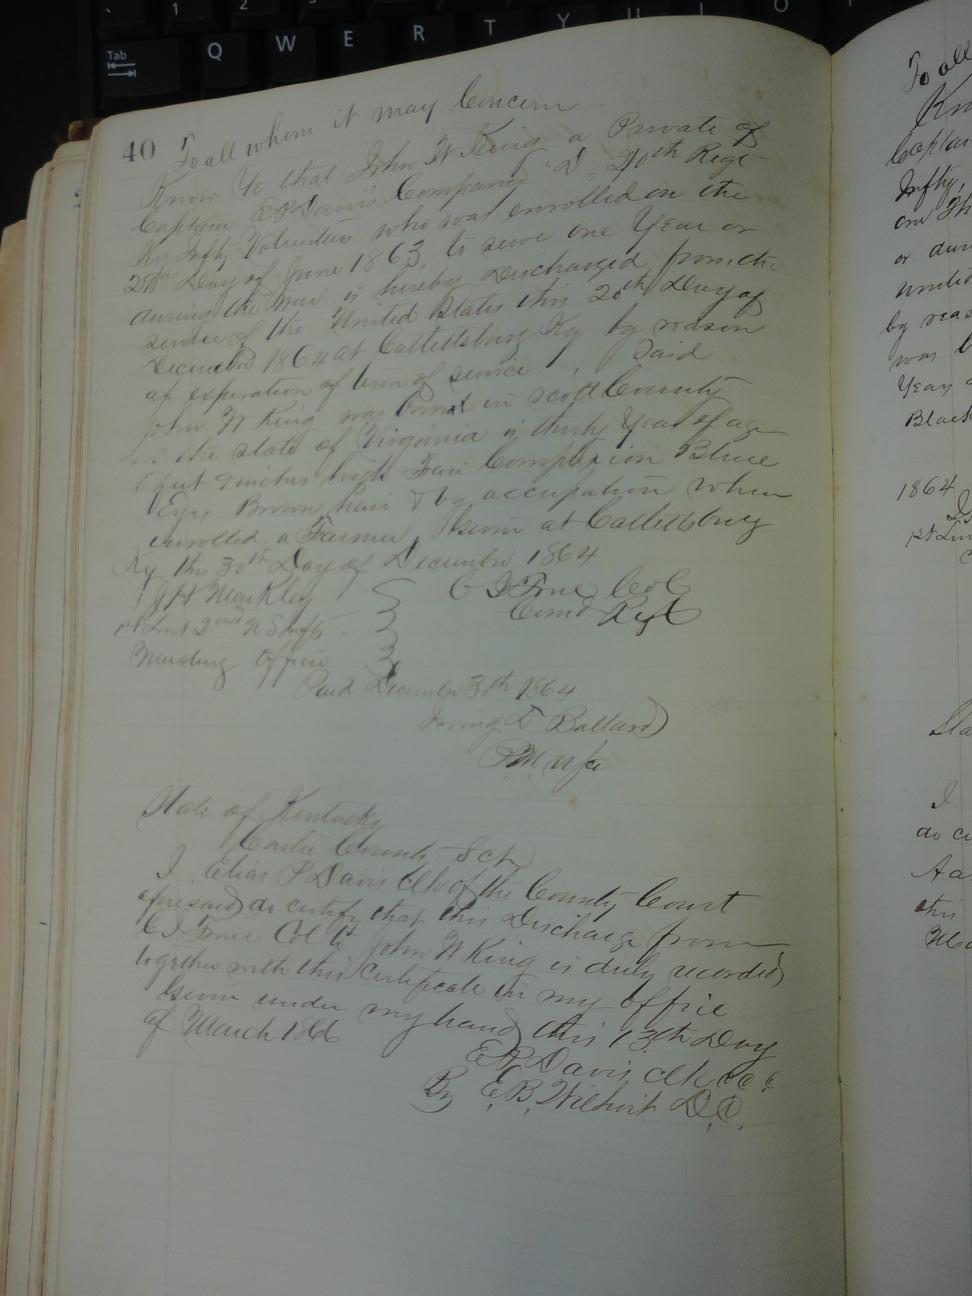 40
To all whom it may Concern
Know Ye that John W King a Private of
Captain E P Davis Company "D" 40th Regt
Ky Infty Volunteers who was enrolled on the
Day of June 1863, to serve one Year or
during the war is hereby Discharged from the
service of the United States this Day of
December 1864 at Catlettsburg Ky by reason
of expiration of term of service, Said
John W King was born in scott County
in the state of Virginia is thirty Years of age
5 feet 9 inches high Fair Complexion Blue
Eyes Brown hair & by occupation when
enrolled a Farmer Given at Catlettsburg
Ky this 30th Day of December 1864
J H Markley C J True Col
1st Lieut 2nd Com'd Regt
Mustering Officer
Paid December 30th 1864
Irving D Ballard
P.M. usa
State of Kentucky
Carter County Sct
I Elias P Davis Clk of the County Court
aforesaid do certify that this Discharge from
C J True Col to John W King is duly recorded
together with this Certificate in my office
Given under my hand this 13th Day
of March 1866
E P Davis Clk c c c
By E.B. D.C.
To all
Kn
Captai
Infty,
one
or duri
united
by reas
was b
Year o
Black
1864
1st Lieu
Sta
I
do ce
this